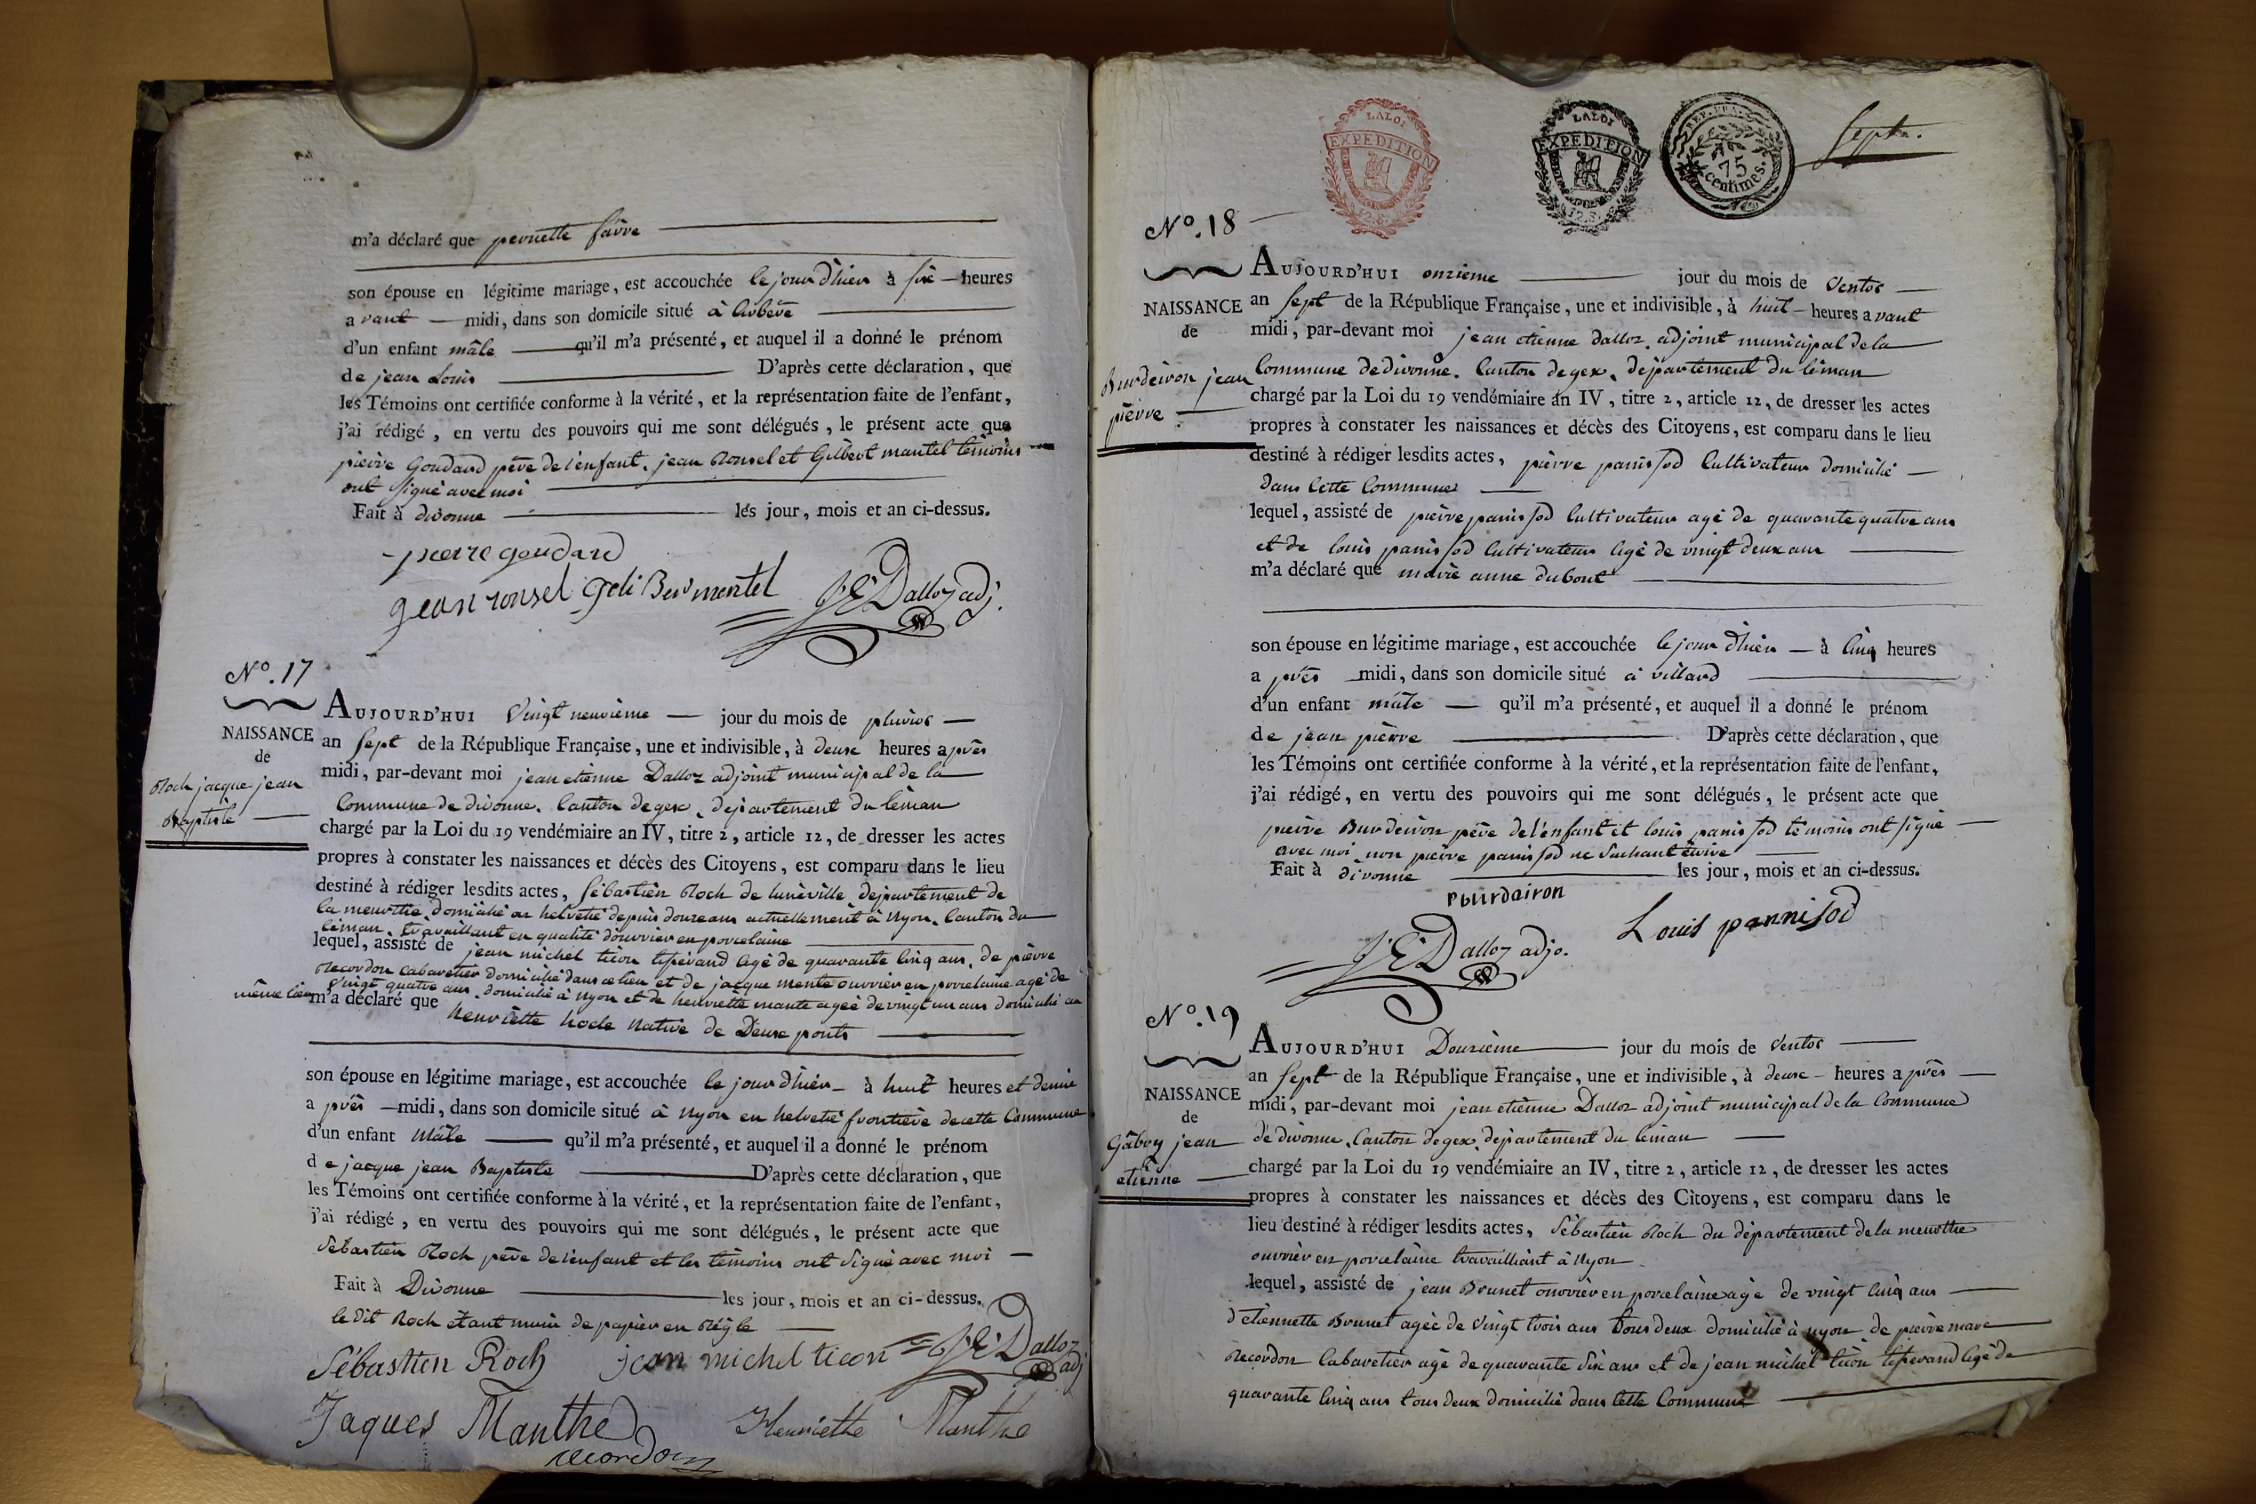 m'a déclaré que pernette favre
son épouse en légitime mariage, est accouchée le jour d'hier à six heures
avant midi, dans son domicile situé à Arbère
d'un enfant mâle qu'il m'a présenté, et auquel il a donné le prénom
de jean Louis D'après cette déclaration, que
les Témoins ont certifiée conforme à la vérité, et la représentation faite de l'enfant,
j'ai rédigé, en vertu des pouvoirs qui me sont délégués, le présent acte que
pierre Goudard père de l'enfant. jean Ronsel et Gilbert mantel témoins
ont signé avec moi
Fait à divonne les jour, mois et an ci-dessus.
pierre goudard
jean ronsel J E Dalloz adj.
N.º 17
AUJOURD'HUI Vingt neuvième jour du mois de pluviôs
NAISSANCE
de
Roch jacque jean
Baptiste
an sept de la République Française, une et indivisible, à deux heures après
midi, par-devant moi jean etienne Dalloz adjoint municipal de la
Commune de divonne. Canton de gex. département du léman
chargé par la Loi du 19 vendémiaire an IV, titre 2, article 12, de dresser les actes
propres à constater les naissances et décès des Citoyens, est comparu dans le lieu
destiné à rédiger lesdits actes, Sébastien Roch de lunéville département de
la meurthe domicilié en helvetie depuis douze ans actuellement à Nyon. Canton du
léman. travaillant en qualité d'ouvrier en porcelaine
lequel, assisté de jean michel ticon agé de quarante cinq ans, de pierre
Recordon cabaretier domicilié dans ce lieu et de jacque mente ouvrier en porcelaine agé de
vingt quatre ans. domicilié à Nyon et de henriette mante agée de vingt un ans domicilié au
même lieu m'a déclaré que henriette hocle Native de Deux ponts
son épouse en légitime mariage, est accouchée le jour d'hier à huit heures et demie
après midi, dans son domicile situé à Nyon en helvetie frontière de cette Commune
d'un enfant Mâle qu'il m'a présenté, et auquel il a donné le prénom
de jacque jean Baptiste D'après cette déclaration, que
les Témoins ont certifiée conforme à la vérité, et la représentation faite de l'enfant,
j'ai rédigé, en vertu des pouvoirs qui me sont délégués, le présent acte que
Sébastien Roch père de l'enfant et les témoins ont signé avec moi
Fait à Divonne les jour, mois et an ci-dessus.
le dit Roch étant muni de papier en Règle
Sébastien Roch jean michel ticon J E Dalloz adj
Jaques Manthe Henriethe Manthe
recordon
LA LOI
EXPEDITION
LA LOI
EXPEDITION
REP. FRA.
75
centimes.
Sept.
N.º 18
AUJOURD'HUI onzieme jour du mois de Ventos
NAISSANCE
de
Burdeiron jean
pierre
an sept de la République Française, une et indivisible, à huit heures avant
midi, par-devant moi jean etienne dalloz. adjoint municipal de la
Commune de divonne. Canton de gex. département du léman
chargé par la Loi du 19 vendémiaire an IV, titre 2, article 12, de dresser les actes
propres à constater les naissances et décès des Citoyens, est comparu dans le lieu
destiné à rédiger lesdits actes, pierre panissod Cultivateur domicilié
dans Cette Commune
lequel, assisté de pierre panissod Cultivateur agé de quarante quatre ans
et de louis panissod Cultivateur agé de vingt deux ans
m'a déclaré que marie anne dubout
son épouse en légitime mariage, est accouchée le jour d'hier à Cinq heures
après midi, dans son domicile situé à villard
d'un enfant mâle qu'il m'a présenté, et auquel il a donné le prénom
de jean pierre D'après cette déclaration, que
les Témoins ont certifiée conforme à la vérité, et la représentation faite de l'enfant,
j'ai rédigé, en vertu des pouvoirs qui me sont délégués, le présent acte que
pierre Burdeiron père de l'enfant et louis panissod témoins ont signé
avec moi non pierre panissod ne Sachant écrire
Fait à divonne les jour, mois et an ci-dessus.
Pburdairon
Louis pannisod
J E Dalloz adjo.
N.º 19
AUJOURD'HUI Douzieme jour du mois de Ventos
NAISSANCE
de
Gabry jean
etienne
an sept de la République Française, une et indivisible, à deux heures après
midi, par-devant moi jean etienne Dalloz adjoint municipal de la Commune
de divonne. Canton de gex. département du léman
chargé par la Loi du 19 vendémiaire an IV, titre 2, article 12, de dresser les actes
propres à constater les naissances et décès des Citoyens, est comparu dans le
lieu destiné à rédiger lesdits actes, Sébastien Roch du département de la meurthe
ouvrier en porcelaine travailliant à Nyon
lequel, assisté de jean Brunet ouvrier en porcelaine agé de vingt Cinq ans
d'étiennette Brunet agée de Vingt trois ans tous deux domicilié à nyon de pierre marc
Recordon Cabaretier agé de quarante Six ans et de jean michel ticon agé de
quarante Cinq ans tous deux domicilié dans Cette Commune